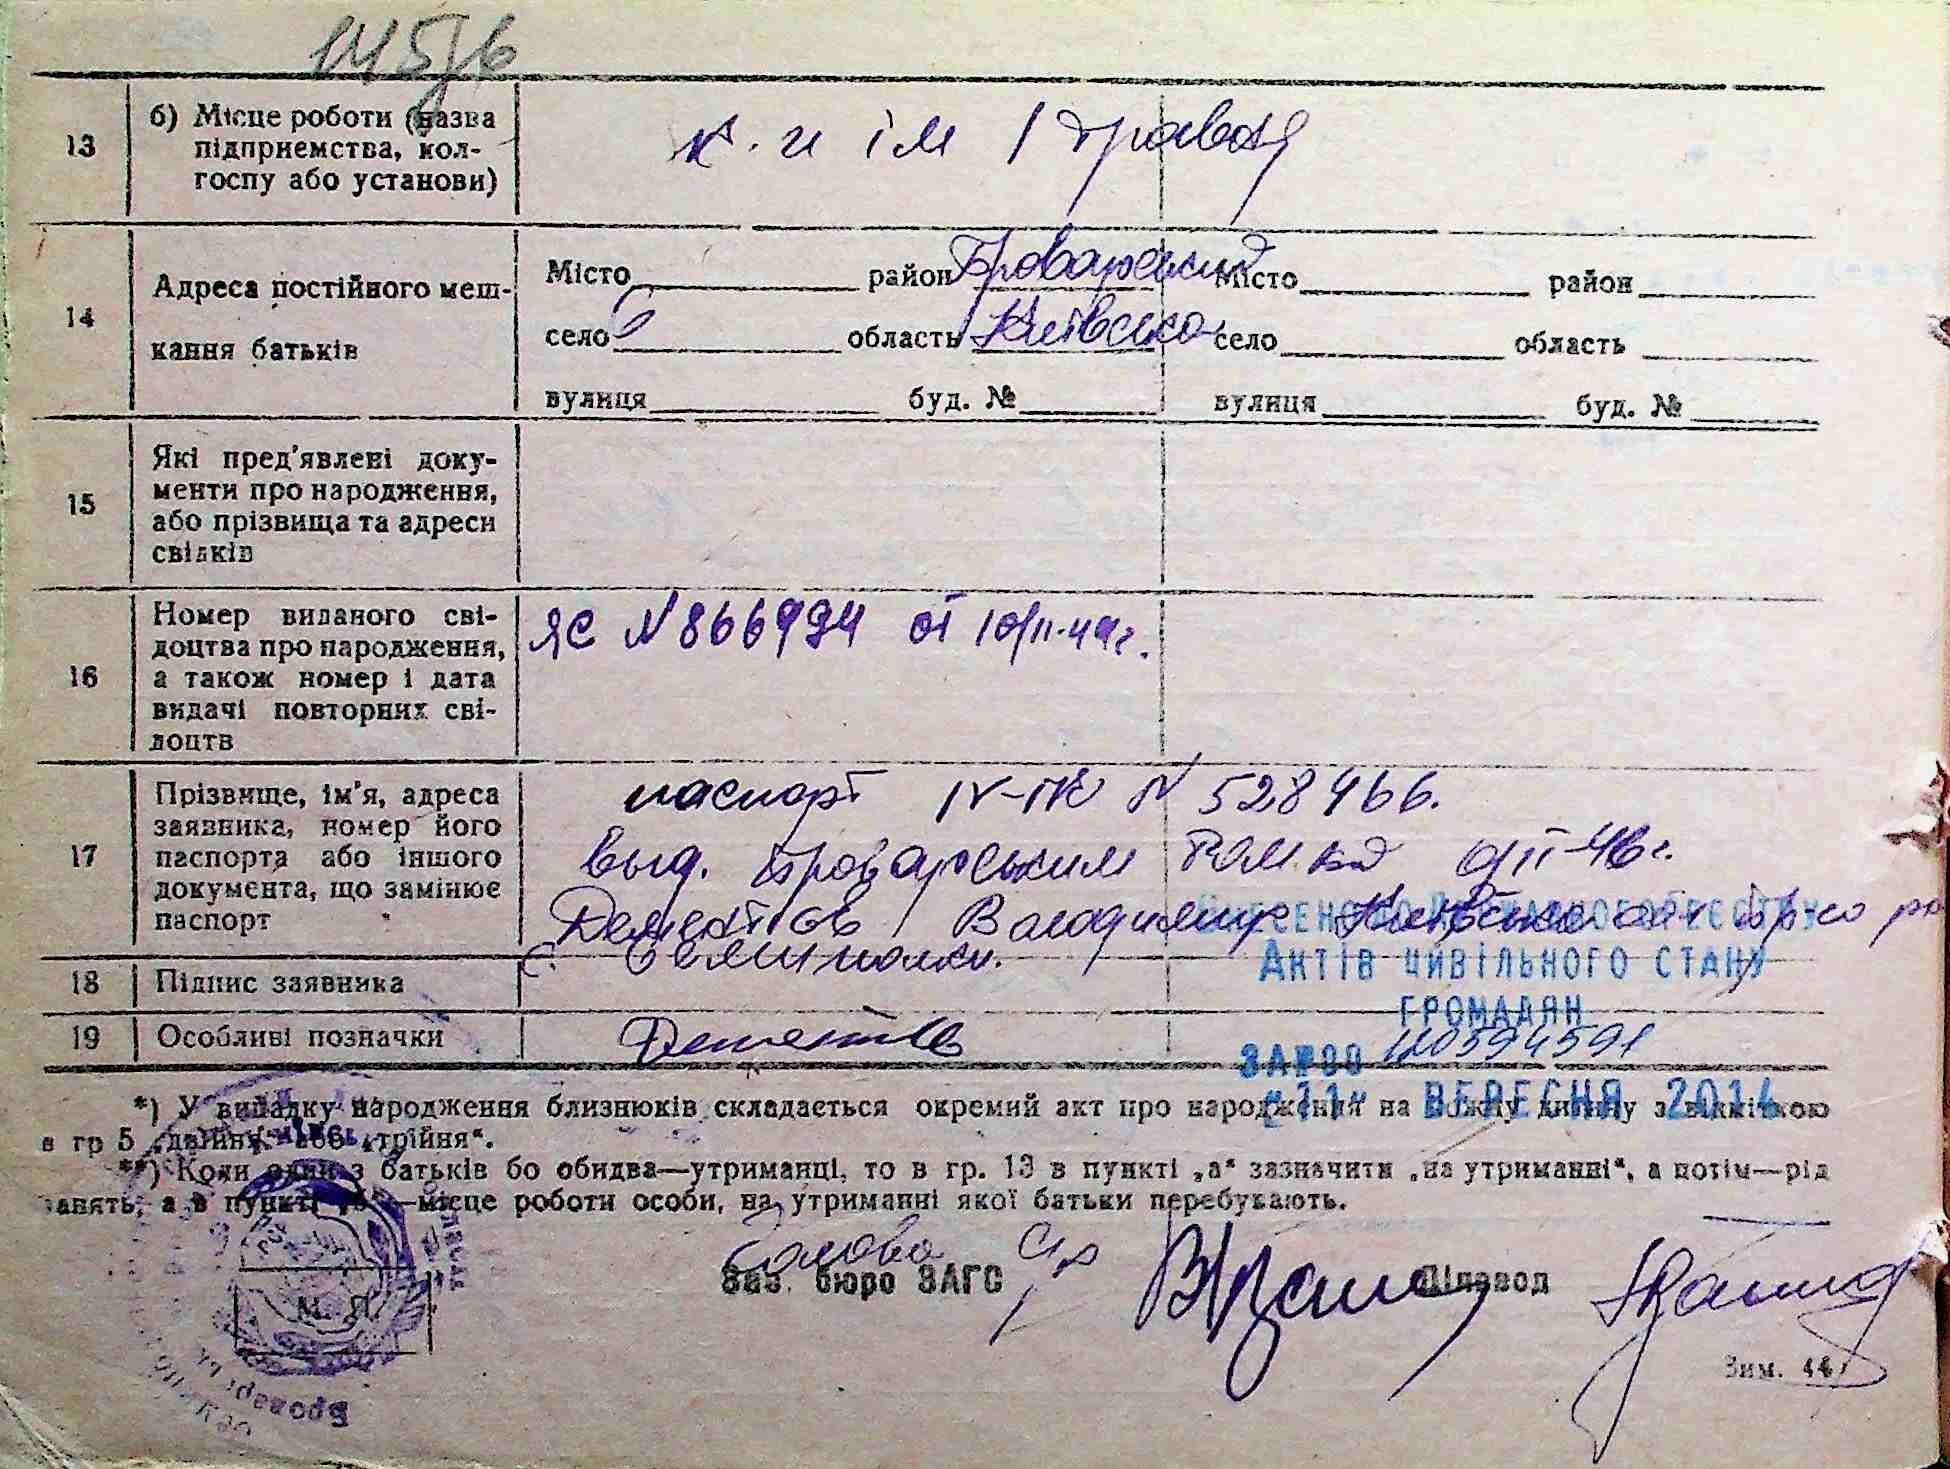 13 б) Місце роботи (назва
підприємства, кол-
госпу або установи)
к. и ім 1 травня
14 Адреса постійного меш-
кання батьків
Місто район Броварський Місто район
село область Київська село область
вулиця буд. № вулиця буд. №
15 Які пред'явлені доку-
менти про народження,
або прізвища та адреси
свідків
16 Номер виданого сві-
доцтва про народження,
а також номер і дата
видачі повторних сві-
доцтв
ЯС N 866994 от 10/II-49г.
17 Прізвище, ім'я, адреса
заявника, номер його
паспорта або іншого
документа, що замінює
паспорт
паспорт IV-ПК N 528466.
выд. Броварським 46г.
Володимир Київська обл
с. Семиполки.
18 Підпис заявника
19 Особливі позначки
Актів цивільного стану
громадян
за №00 120594591
"11" вересня 2014
*) У випадку народження близнюків складається окремий акт про народження на кожну дитину з відміткою
в гр 5 „двійня“ або „трійня“.
**) Коли один з батьків бо обидва—утриманці, то в гр. 13 в пункті „а“ зазначити „на утриманні“, а потім—рід
занять, а в пункті —місце роботи особи, на утриманні якої батьки перебувають.
Голова
Зав. бюро ЗАГС Діловод
М. П.